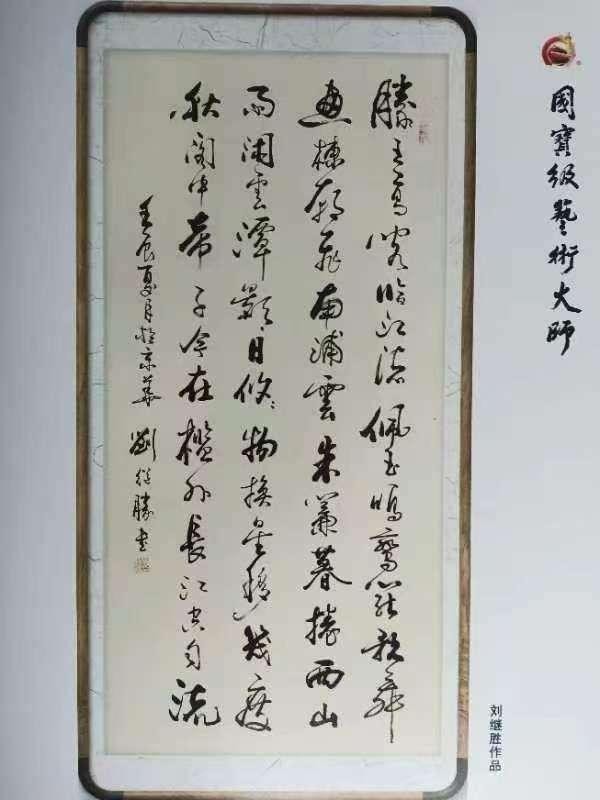 國寶級藝術大師
滕王高閣臨江渚佩玉鳴鸞罷歌舞
畫棟朝飛南浦雲朱簾暮捲西山
雨閑雲潭影日悠々物換星移幾度
秋閣中帝子今在檻外長江空自流
壬辰夏月於京華 劉繼勝書
刘继胜作品